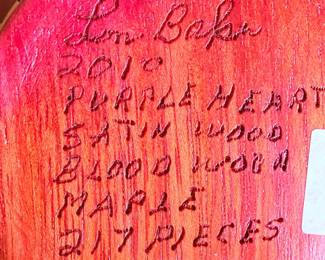 Lon Baker
2010
PURPLE HEART
SATIN WOOD
BLOOD WOOD
MAPLE
217 PIECES